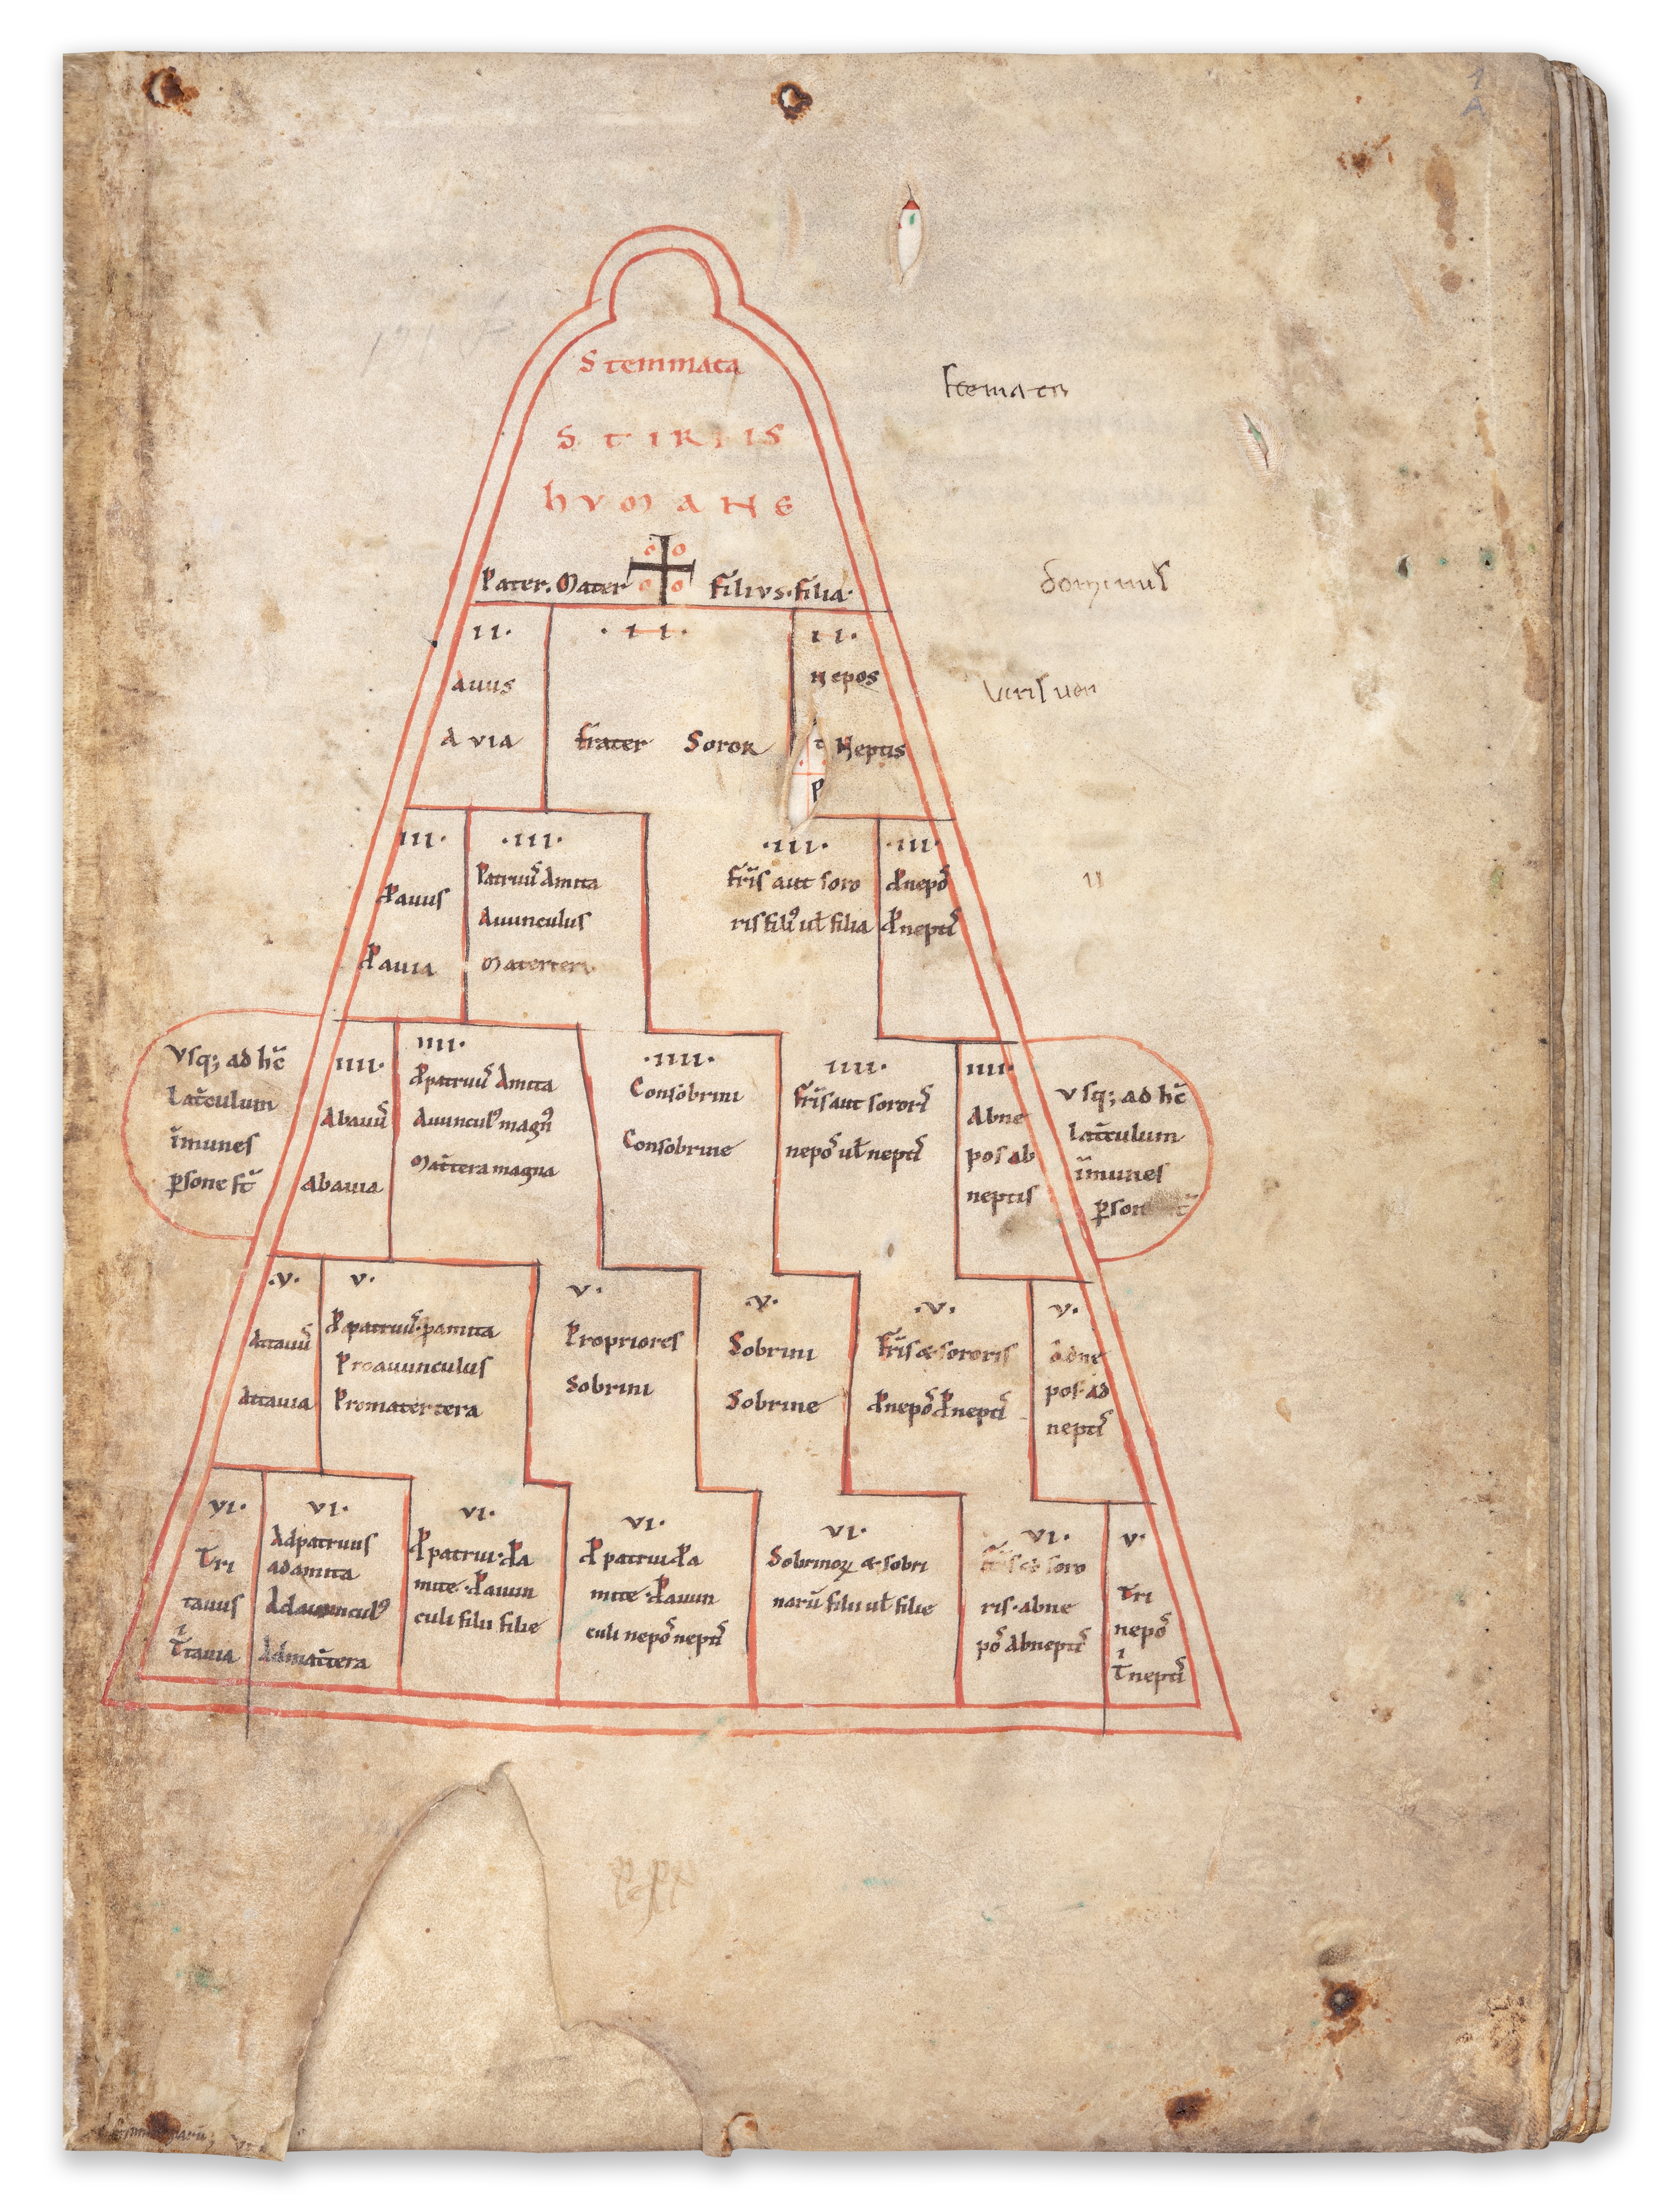 1
A
Stemmata
STIRPIS
hVMANE
Pater. Mater
Filivs. filia.
II.
Auus
Avia
.II.
frater Soror
II.
Nepos
Neptis
III.
P̱auus
P̱auia
.III.
Patruus̄ Amita
Auunculus
Matertera
.III.
fr̄is aut soro
ris filiꝰ uł filia
.III.
P̱nepōs
P̱neptis̄
Vsq; ad hc̄
Lat̄culum
īmunes
p̱sone st̄
IIII.
Abauus̄
Abauia
IIII.
P̱patruus̄ Amita
Auunculꝰ magnꝰ
Mat̄tera magna
.IIII.
Consobrini
Consobrine
IIII.
fr̄is aut sororis̄
nepos̄ uł neptis̄
IIII.
Abne
pos ab
neptis
vsq; ad hc̄
lat̄culum
īmunes
.V.
Attauus̄
Attauia
V.
P̱patruus̄. p̱amita
Proauunculus
Promatertera
V.
Propriores
Sobrini
.V.
Sobrini
Sobrine
.V.
fr̄is & sororis
P̱nepos̄ P̱neptis̄
V.
adne
pos. ad
neptis̄
VI.
Tri
tauus
T̄tauia
VI.
Adpatruus
adamita
Adauunculꝰ
Admat̄tera
VI.
P̱patrui. P̱a
mite. P̱auun
culi filii filie
VI.
P̱patrui P̱a
mite. P̱auun
culi nepos̄ neptis̄
VI.
Sobrinoꝝ & sobri
narū filii uł filie
VI.
fr̄is & soro
ris. abne
pos̄ Abneptis̄
V.
Tri
nepos̄
T̄neptis̄
stemata
dominus